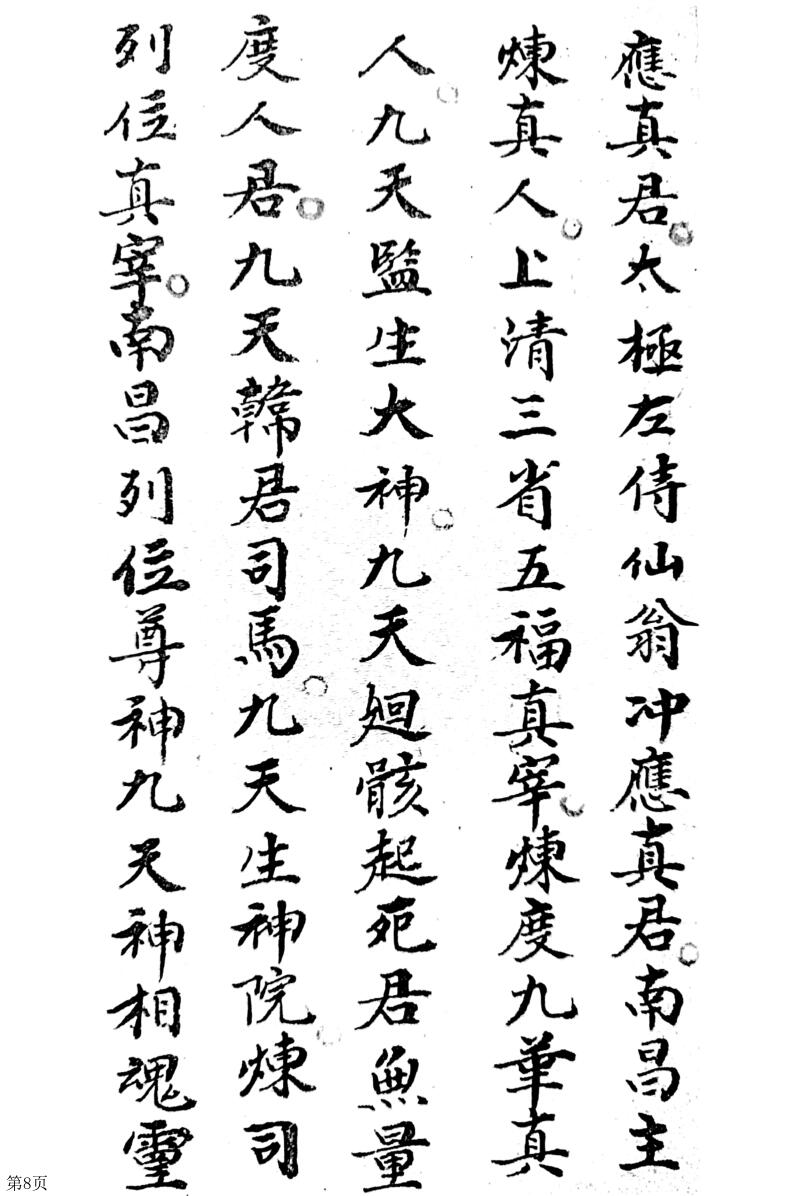 應真君太極左侍仙翁冲應真君南昌主
煉真人上清三省五福真宰煉度九華真
人九天監生大神九天廻骸起死君無量
度人君九天韓君司馬九天生神院煉司
列位真宰南昌列位尊神九天神相魂靈
第8页